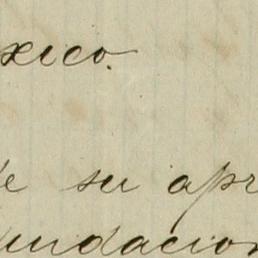 xico.
de su apr
undacion